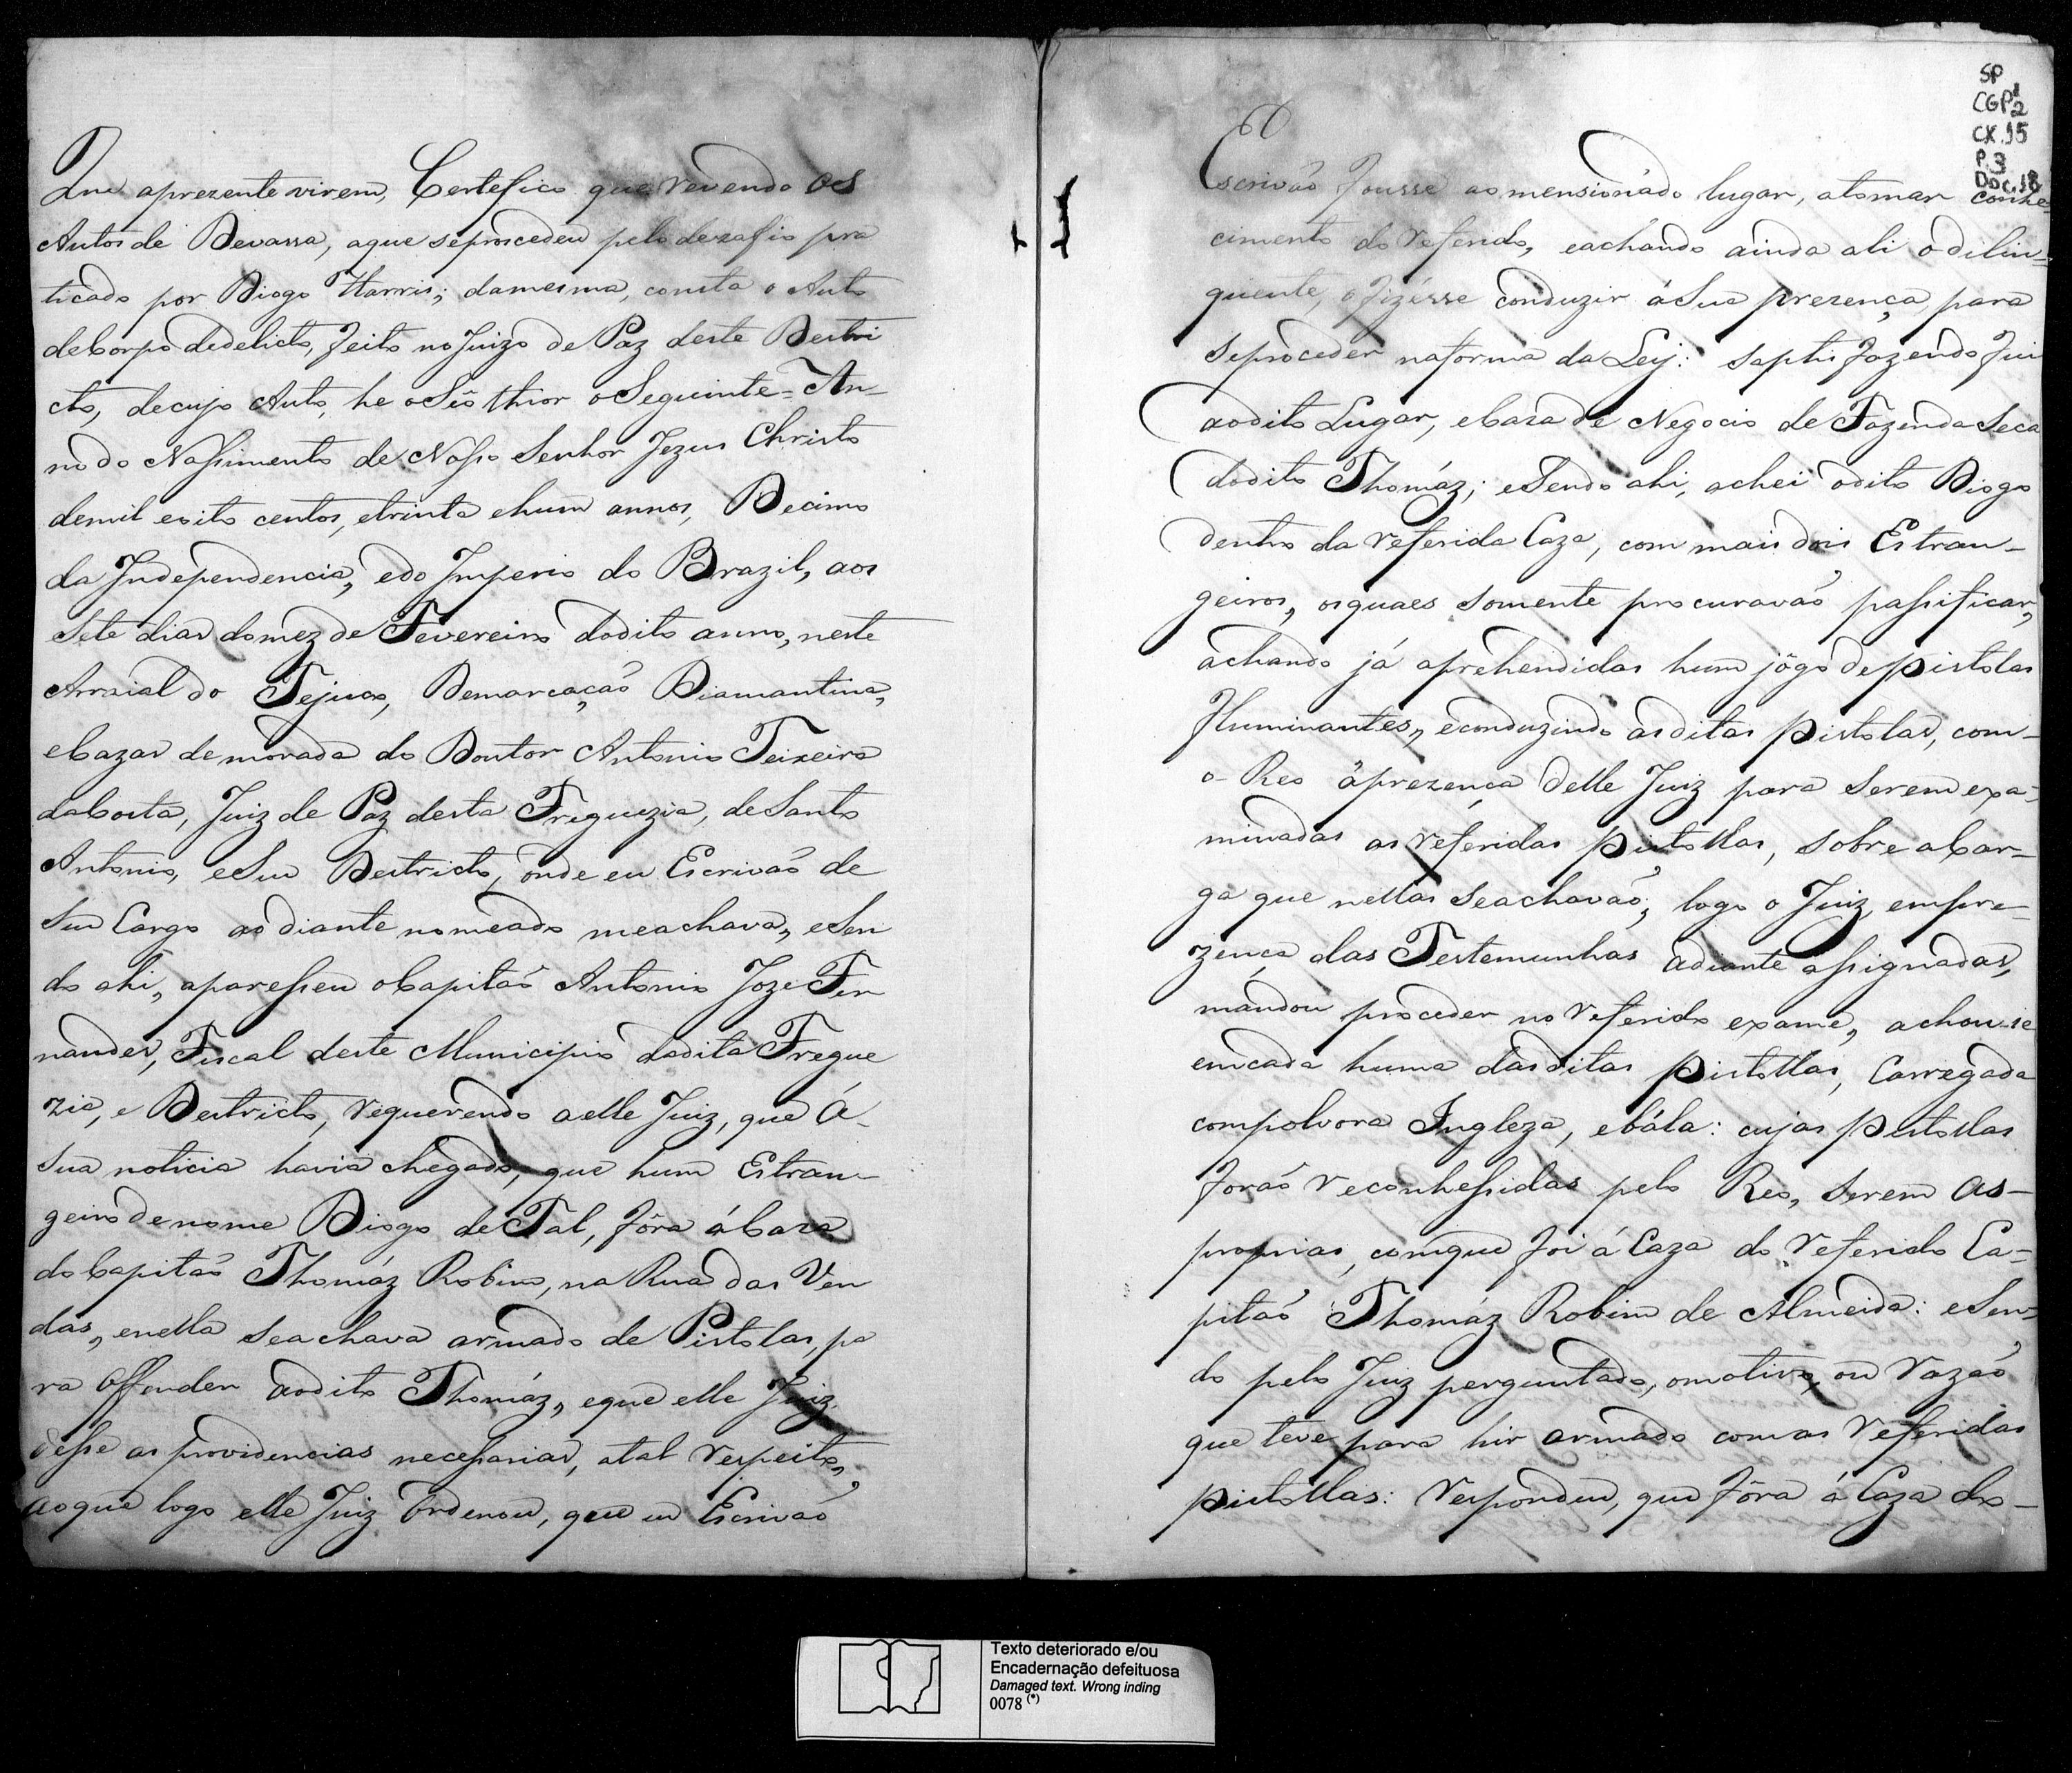 Que aprezente virem, Certefico que revendo os
Autos de Devassa, aque seprocedeu pelo dezafio pra
ticado por Diogo Harris; damesma, consta o Auto
deCorpo dedelicto, feito no Juizo de Paz deste Destri
cto, decujo Auto, he oSeo thior oSeguinte = An-
no do Nassimento de Nosso Senhor Jezus Christo
demil eoito centos, etrinta ehum annos, Decimo
da Independencia, edo Imperio do Brazil, aos
Sete dias domez de Fevereiro dodito anno, neste
Arraial do Tejuco, Demarcação Diamantina,
eCazas demorada do Doutor Antonio Teixeira
daCosta, Juiz de Paz desta Freguezia, de Santo
Antonio, eSeu Destricto, onde eu Escrivaõ de
Seu Cargo ao diante nomeado meachava, eSen
do ahi, apareseu oCapitaõ Antonio Joze Fer
nandes, Fiscal deste Municipio dadita Fregue
zia, e Destricto, requerendo aelle Juiz, que á-
Sua noticia havia chegado, que hum Estran-
geiro denome Diogo de Tal, fôra á Caza
do Capitaõ Thomáz Robim, na Rua das Ven
das, enella Seachava armado de Pistolas, pa
ra Offender aodito Thomáz, eque elle Juiz
desse as providencias necessarias, atal respeito,
aoque logo elle Juiz Ordenou, que eu Escrivaõ
SP
CGP 1/2
CX. 15
P. 3
Doc. 18
Escrivaõ fousse ao mensionádo lugar, atomar conhe-
cimento do referido, eachando ainda ali odilin-
quente, o fizésse conduzir á Sua prezença, para
Seproceder naforma da Ley: fazendo
aodito Lugar, eCaza de Negocio de Fazenda Seca
dodito Thomáz; eSendo ahi, achei odito Diogo
dentro da referida Caza, com mais dois Estran-
geiros, osquaes Somente procuravaõ passificar,
achando já aprehendidas hum jôgo de pistolas
fluminantes, econduzindo asditas pistolas, com-
o Reo áprezença delle Juiz para Serem exa-
minadas as referidas pistollas, Sobre aCar-
ga que nellas Seachavaõ, logo o Juiz, empre-
zença das Testemunhas adiante assignadas,
mandou proceder no referido exame, achou-se
emcada huma dasditas pistollas, Carregada
compolvora Ingleza, ebála: cujas pistollas
foraõ reconhessidas pelo Reo, Serem as-
proprias, comque foi á Caza do referido Ca-
pitaõ Thomáz Robim de Almeida: eSen-
do pelo Juiz perguntado, omotivo, ou razaõ
que teve para hir armado comas referidas
pistollas: respondeu, que fôra á Caza do-
Texto deteriorado e/ou
Encadernação defeituosa
Damaged text. Wrong inding
0078 (*)